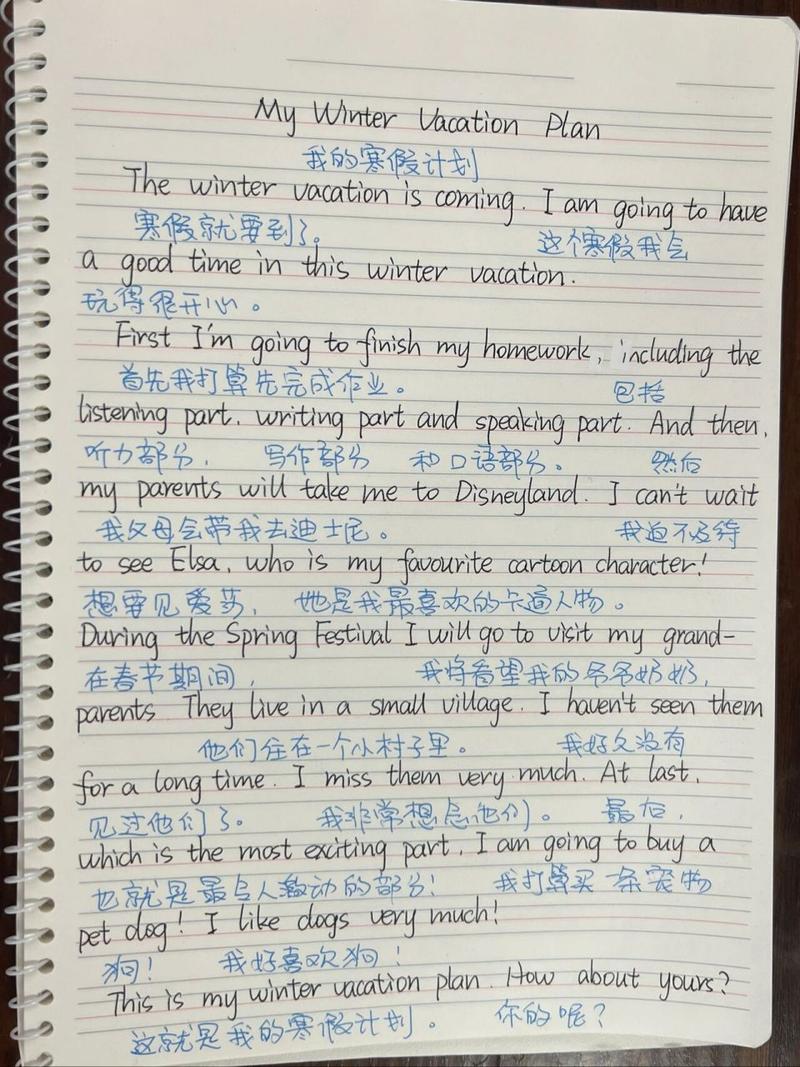 My Winter Vacation Plan
我的寒假计划
The winter vacation is coming. I am going to have
寒假就要到了。 这个寒假我会
a good time in this winter vacation.
玩得很开心。
First I'm going to finish my homework, including the
首先我打算先完成作业。 包括
listening part, writing part and speaking part. And then,
听力部分, 写作部分 和口语部分。 然后
my parents will take me to Disneyland. I can't wait
我父母会带我去迪士尼。 我迫不及待
to see Elsa, who is my favourite cartoon character!
想要见爱莎, 她是我最喜欢的卡通人物。
During the Spring Festival I will go to visit my grand-
在春节期间, 我将看望我的爷爷奶奶,
parents They live in a small village. I haven't seen them
他们住在一个小村子里。 我好久没有
for a long time. I miss them very much. At last,
见过他们了。 我非常想念他们。 最后,
which is the most exciting part, I am going to buy a
也就是最令人激动的部分! 我打算买一条宠物
pet dog! I like dogs very much!
狗! 我好喜欢狗!
This is my winter vacation plan. How about yours?
这就是我的寒假计划。 你的呢?